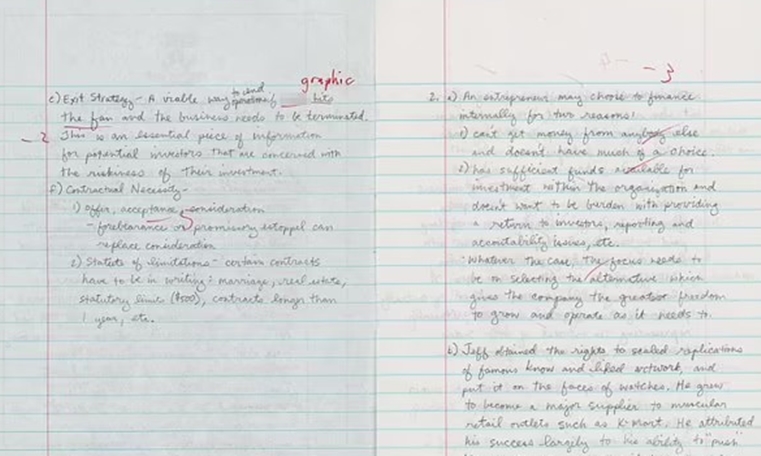 graphic
c) Exit Strategy - A viable way to end operations if hits
the fan and the business needs to be terminated.
- 2 This is an essential piece of information
for potential investors that are concerned with
the riskiness of their investment.
f) Contractual Necessity -
1) offer, acceptance, consideration
- forebearance or promissory estoppel can
replace consideration
2) Statets of limitations - certain contracts
have to be in writing: marriage, real estate,
statutory limits ($500), contracts longer than
1 year, etc.
- 3
2. a) An entrepreneur may choose to finance
internally for two reasons:
1) can't get money from anybody else
and doesn't have much of a choice.
2) has sufficient funds available for
investment within the organization and
doesn't want to be burden with providing
a return to investors, reporting and
accountability issues, etc.
Whatever the case. The focus needs to
be on selecting the alternative which
gives the company the greatest freedom
to grow and operate as it needs to.
b) Jeff obtained the rights to sealed replications
of famous know and liked and
put it on the faces of watches. He grew
to become a major supplier to
retail outlets such as K-mart. He attributed
his success largely to his ability to "push"